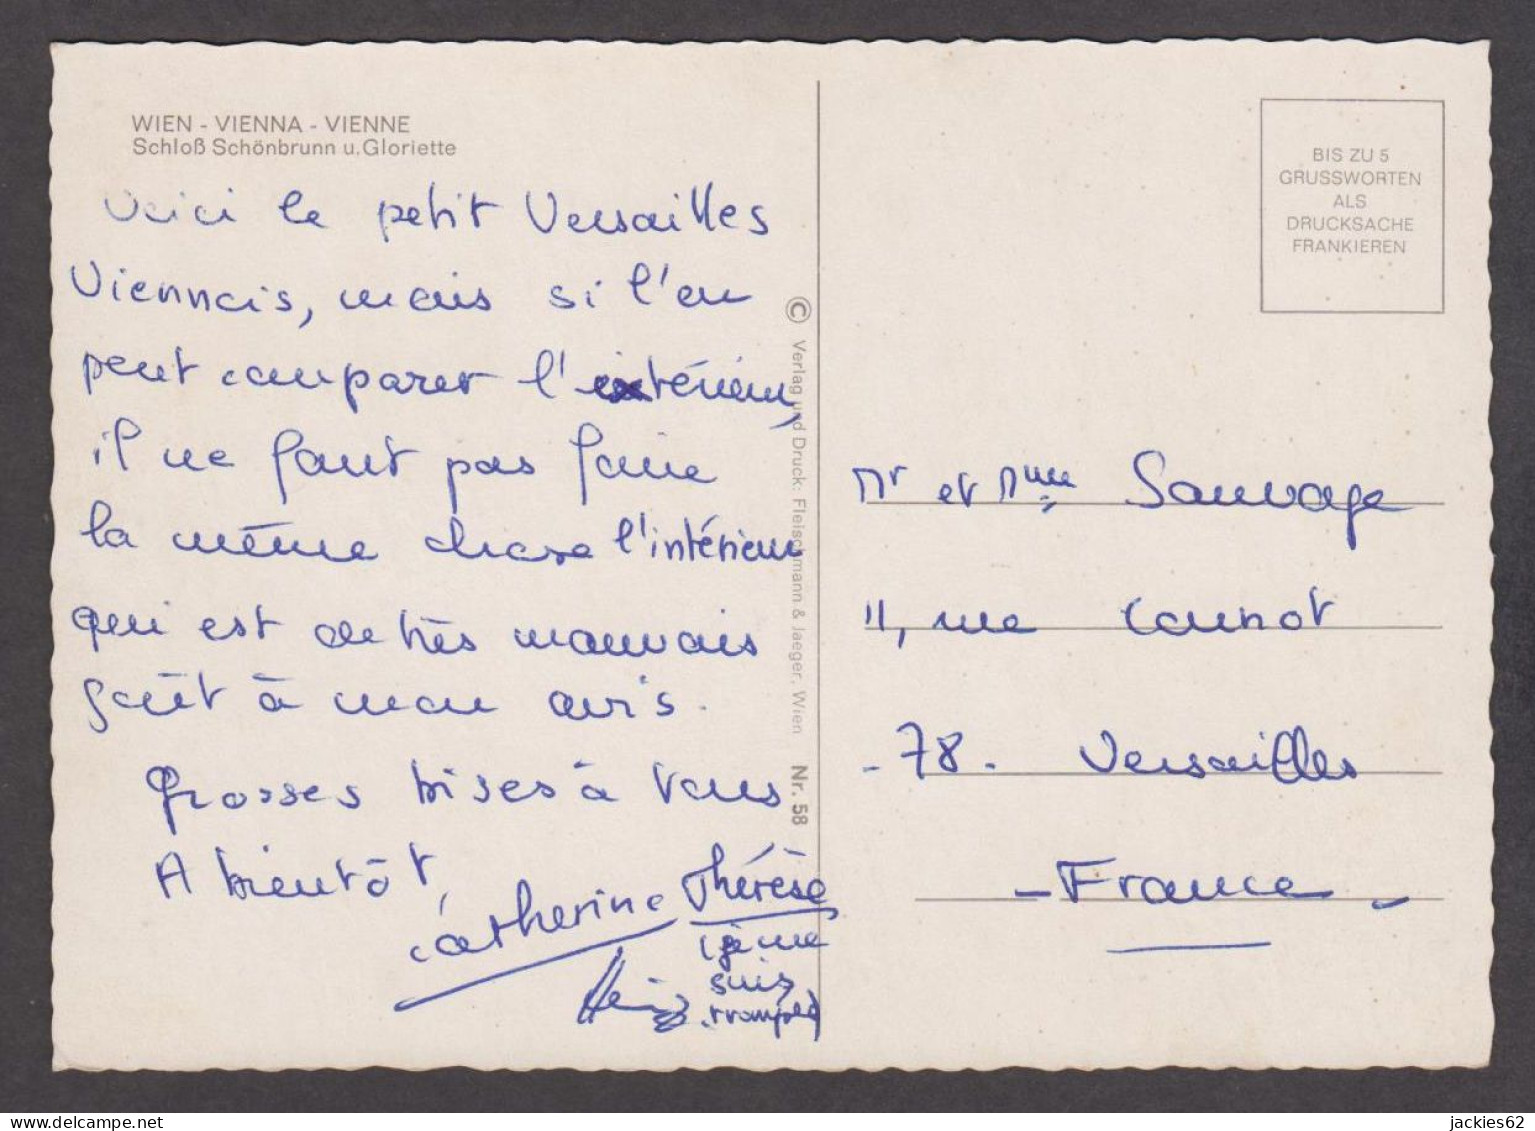 WIEN - VIENNA - VIENNE
Schloß Schönbrunn u. Gloriette
Voici le petit Versailles
Viennois, mais si l'on
peut comparer l'extérieur,
il ne faut pas faire
la même chose l'intérieur
qui est de très mauvais
goût à mon avis.
Grosses bises à vous
A bientôt,
Catherine Thérèse
(je me
suis
trompée)
Heinz
© Verlag und Druck: Fleischmann & Jaeger, Wien Nr. 58
BIS ZU 5
GRUSSWORTEN
ALS
DRUCKSACHE
FRANKIEREN
Mr et Mme Sauvage
11, rue Carnot
- 78 - Versailles
- France -
jackies62